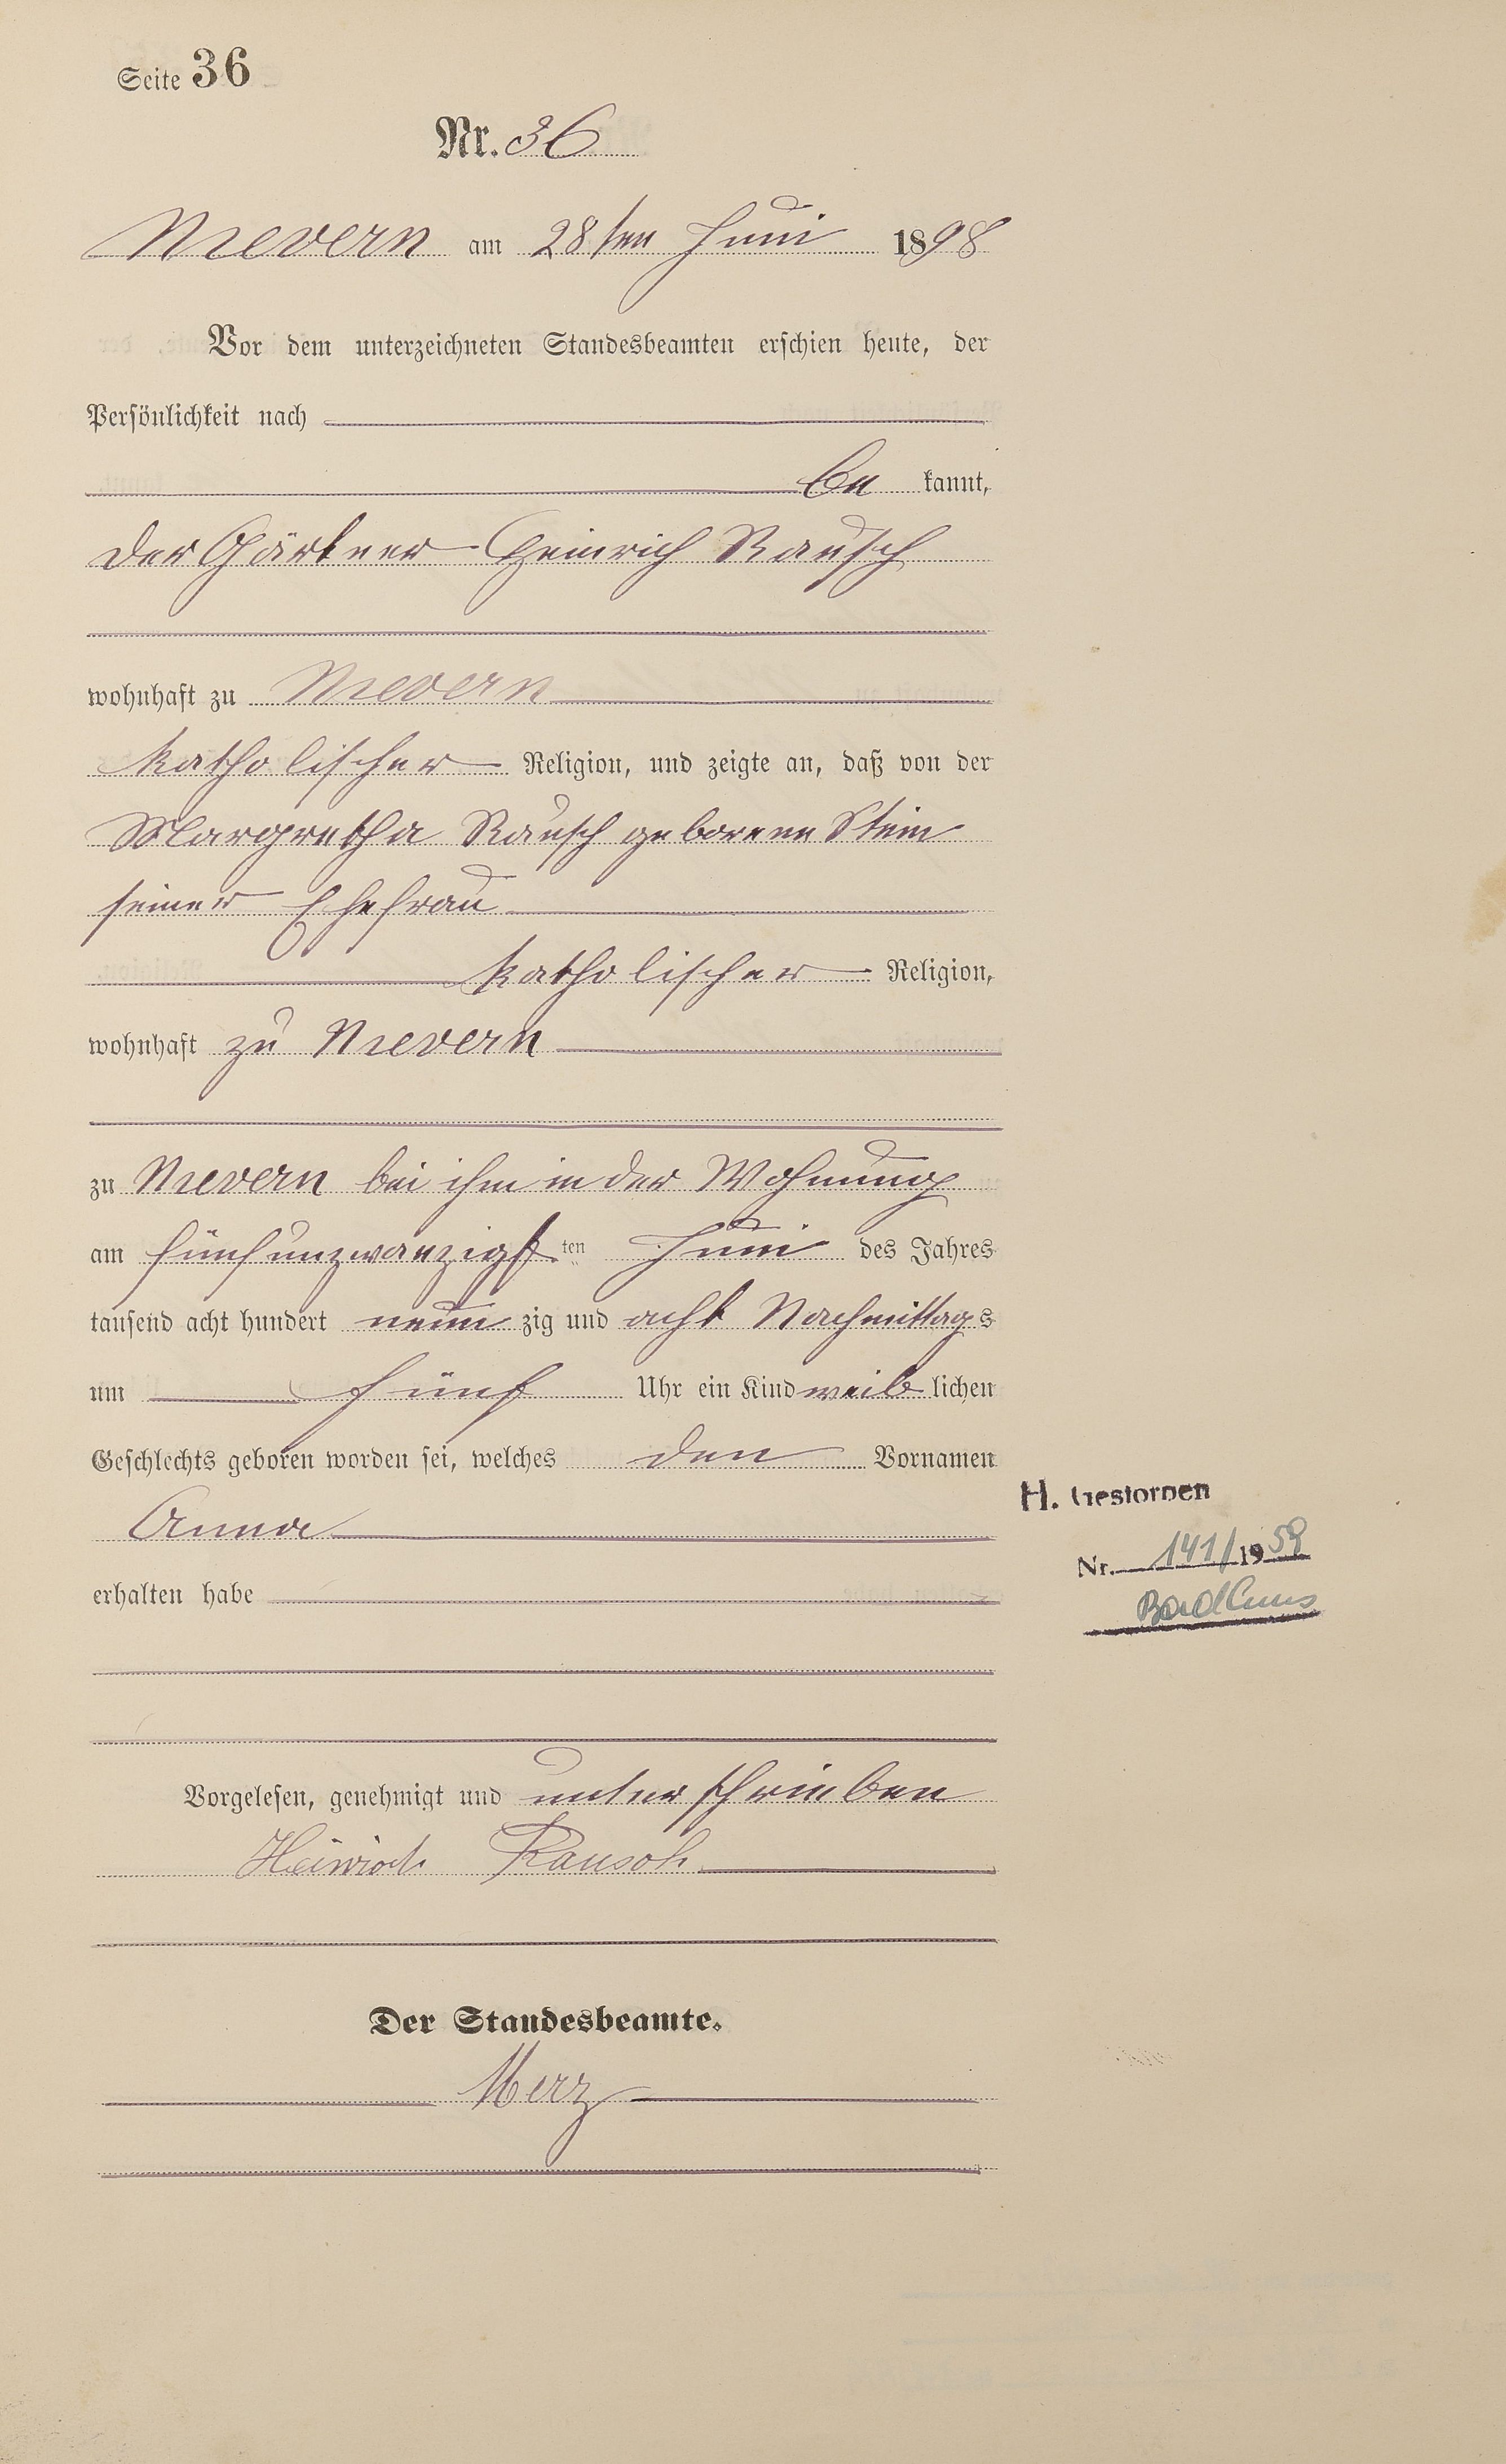 Seite 36
Nr. 36
Nievern am 28ten Juni 1898
Vor dem unterzeichneten Standesbeamten erschien heute, der
Persönlichkeit nach
be kannt,
der Gärtner Heinrich Rausch
wohnhaft zu Nievern
katholischer Religion, und zeigte an, daß von der
Margretha Rausch geborene Stein
seiner Ehefrau
katholischer Religion,
wohnhaft zu Nievern
zu Nievern bei ihm in der Wohnung
am fünfunzwanzigsten Juni des Jahres
tausend acht hundert neun zig und acht Nachmittags
um fünf Uhr ein Kind weib lichen
Geschlechts geboren worden sei, welches den Vornamen
Anna
erhalten habe
H. Gestorben
Nr. 141/1959
Bad Ems
Vorgelesen, genehmigt und unterschrieben
Heinrich Rausch
Der Standesbeamte.
Merz